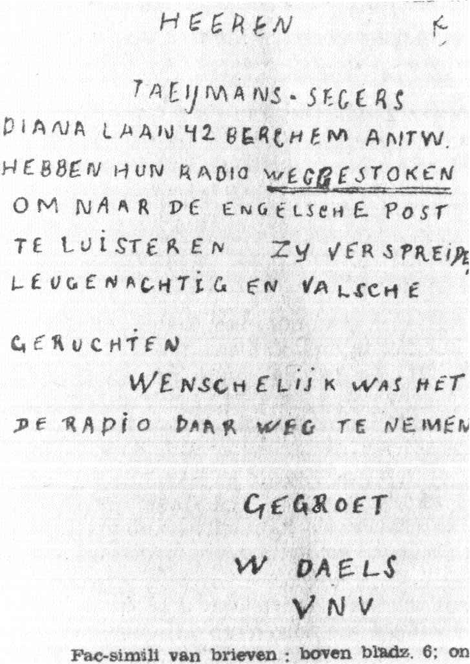 HEEREN K
TAEYMANS - SEGERS
DIANA LAAN 42 BERCHEM ANTW.
HEBBEN HUN RADIO WEGGESTOKEN
OM NAAR DE ENGELSCHE POST
TE LUISTEREN ZY VERSPREIDE
LEUGENACHTIG EN VALSCHE
GERUCHTEN
WENSCHELIJK WAS HET
DE RADIO DAAR WEG TE NEMEN
GEGROET
W DAELS
VNV
Fac-simili van brieven : boven bladz. 6; on